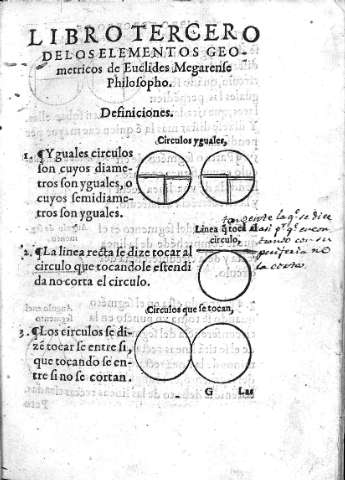 LIBRO TERCERO
DE LOS ELEMENTOS GEO-
metricos de Euclides Megarense
Philosopho.
Definiciones.
Circulos yguales,
1. ¶Yguales circulos
son cuyos diame-
tros son yguales, o
cuyos semidiame-
tros son yguales.
tangente la qe se dize
Linea q̃ toca al
circulo,
2. ¶La linea recta se dize tocar al
circulo que tocandole estendi
da no corta el circulo.
periferia no
la corta.
Circulos que se tocan,
3. ¶Los circulos se di-
zẽ tocar se entre si,
que tocando se en-
tre si no se cortan.
G Las